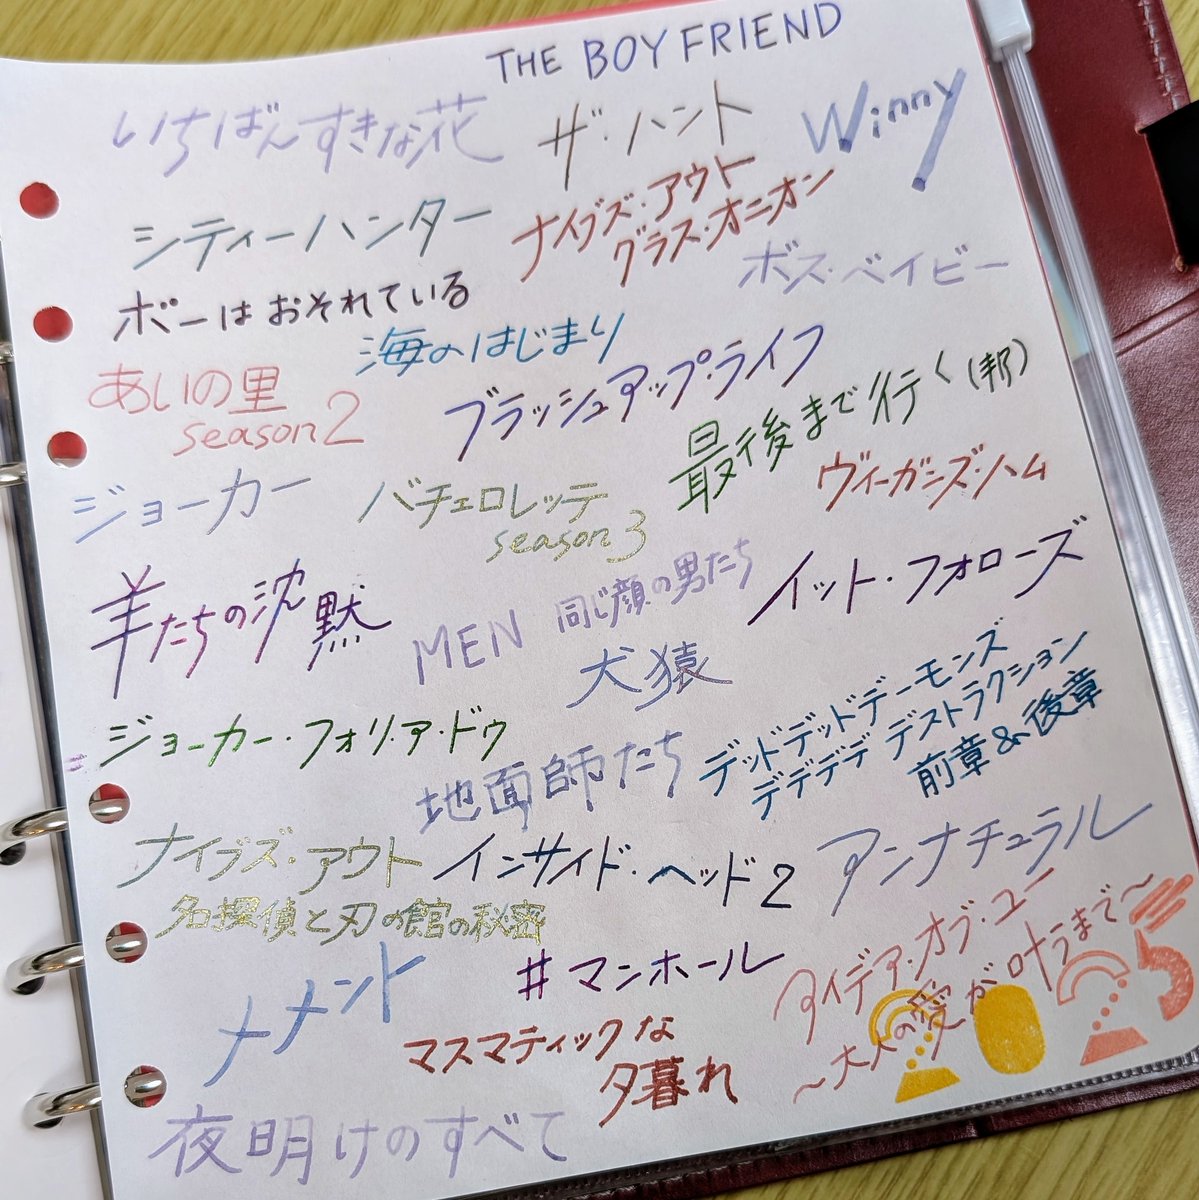 THE BOY FRIEND
いちばんすきな花
ザ・ハント
Winny
シティーハンター
ナイブズ・アウト
グラス・オニオン
ボス・ベイビー
ボーはおそれている
海のはじまり
あいの里
season2
ブラッシュアップ・ライフ
最後まで行く(邦)
ジョーカー
バチェロレッテ
season3
ヴィーガンズ・ハム
羊たちの沈黙
MEN 同じ顔の男たち
イット・フォローズ
犬猿
ジョーカー・フォリ・ア・ドゥ
地面師たち
デッドデッドデーモンズ
デデデデ デストラクション
前章&後章
ナイブズ・アウト
名探偵と刃の館の秘密
インサイド・ヘッド2
アンナチュラル
メメント
#マンホール
アイデア・オブ・ユー
~大人の愛が叶うまで~
マスマティックな
夕暮れ
夜明けのすべて
2025